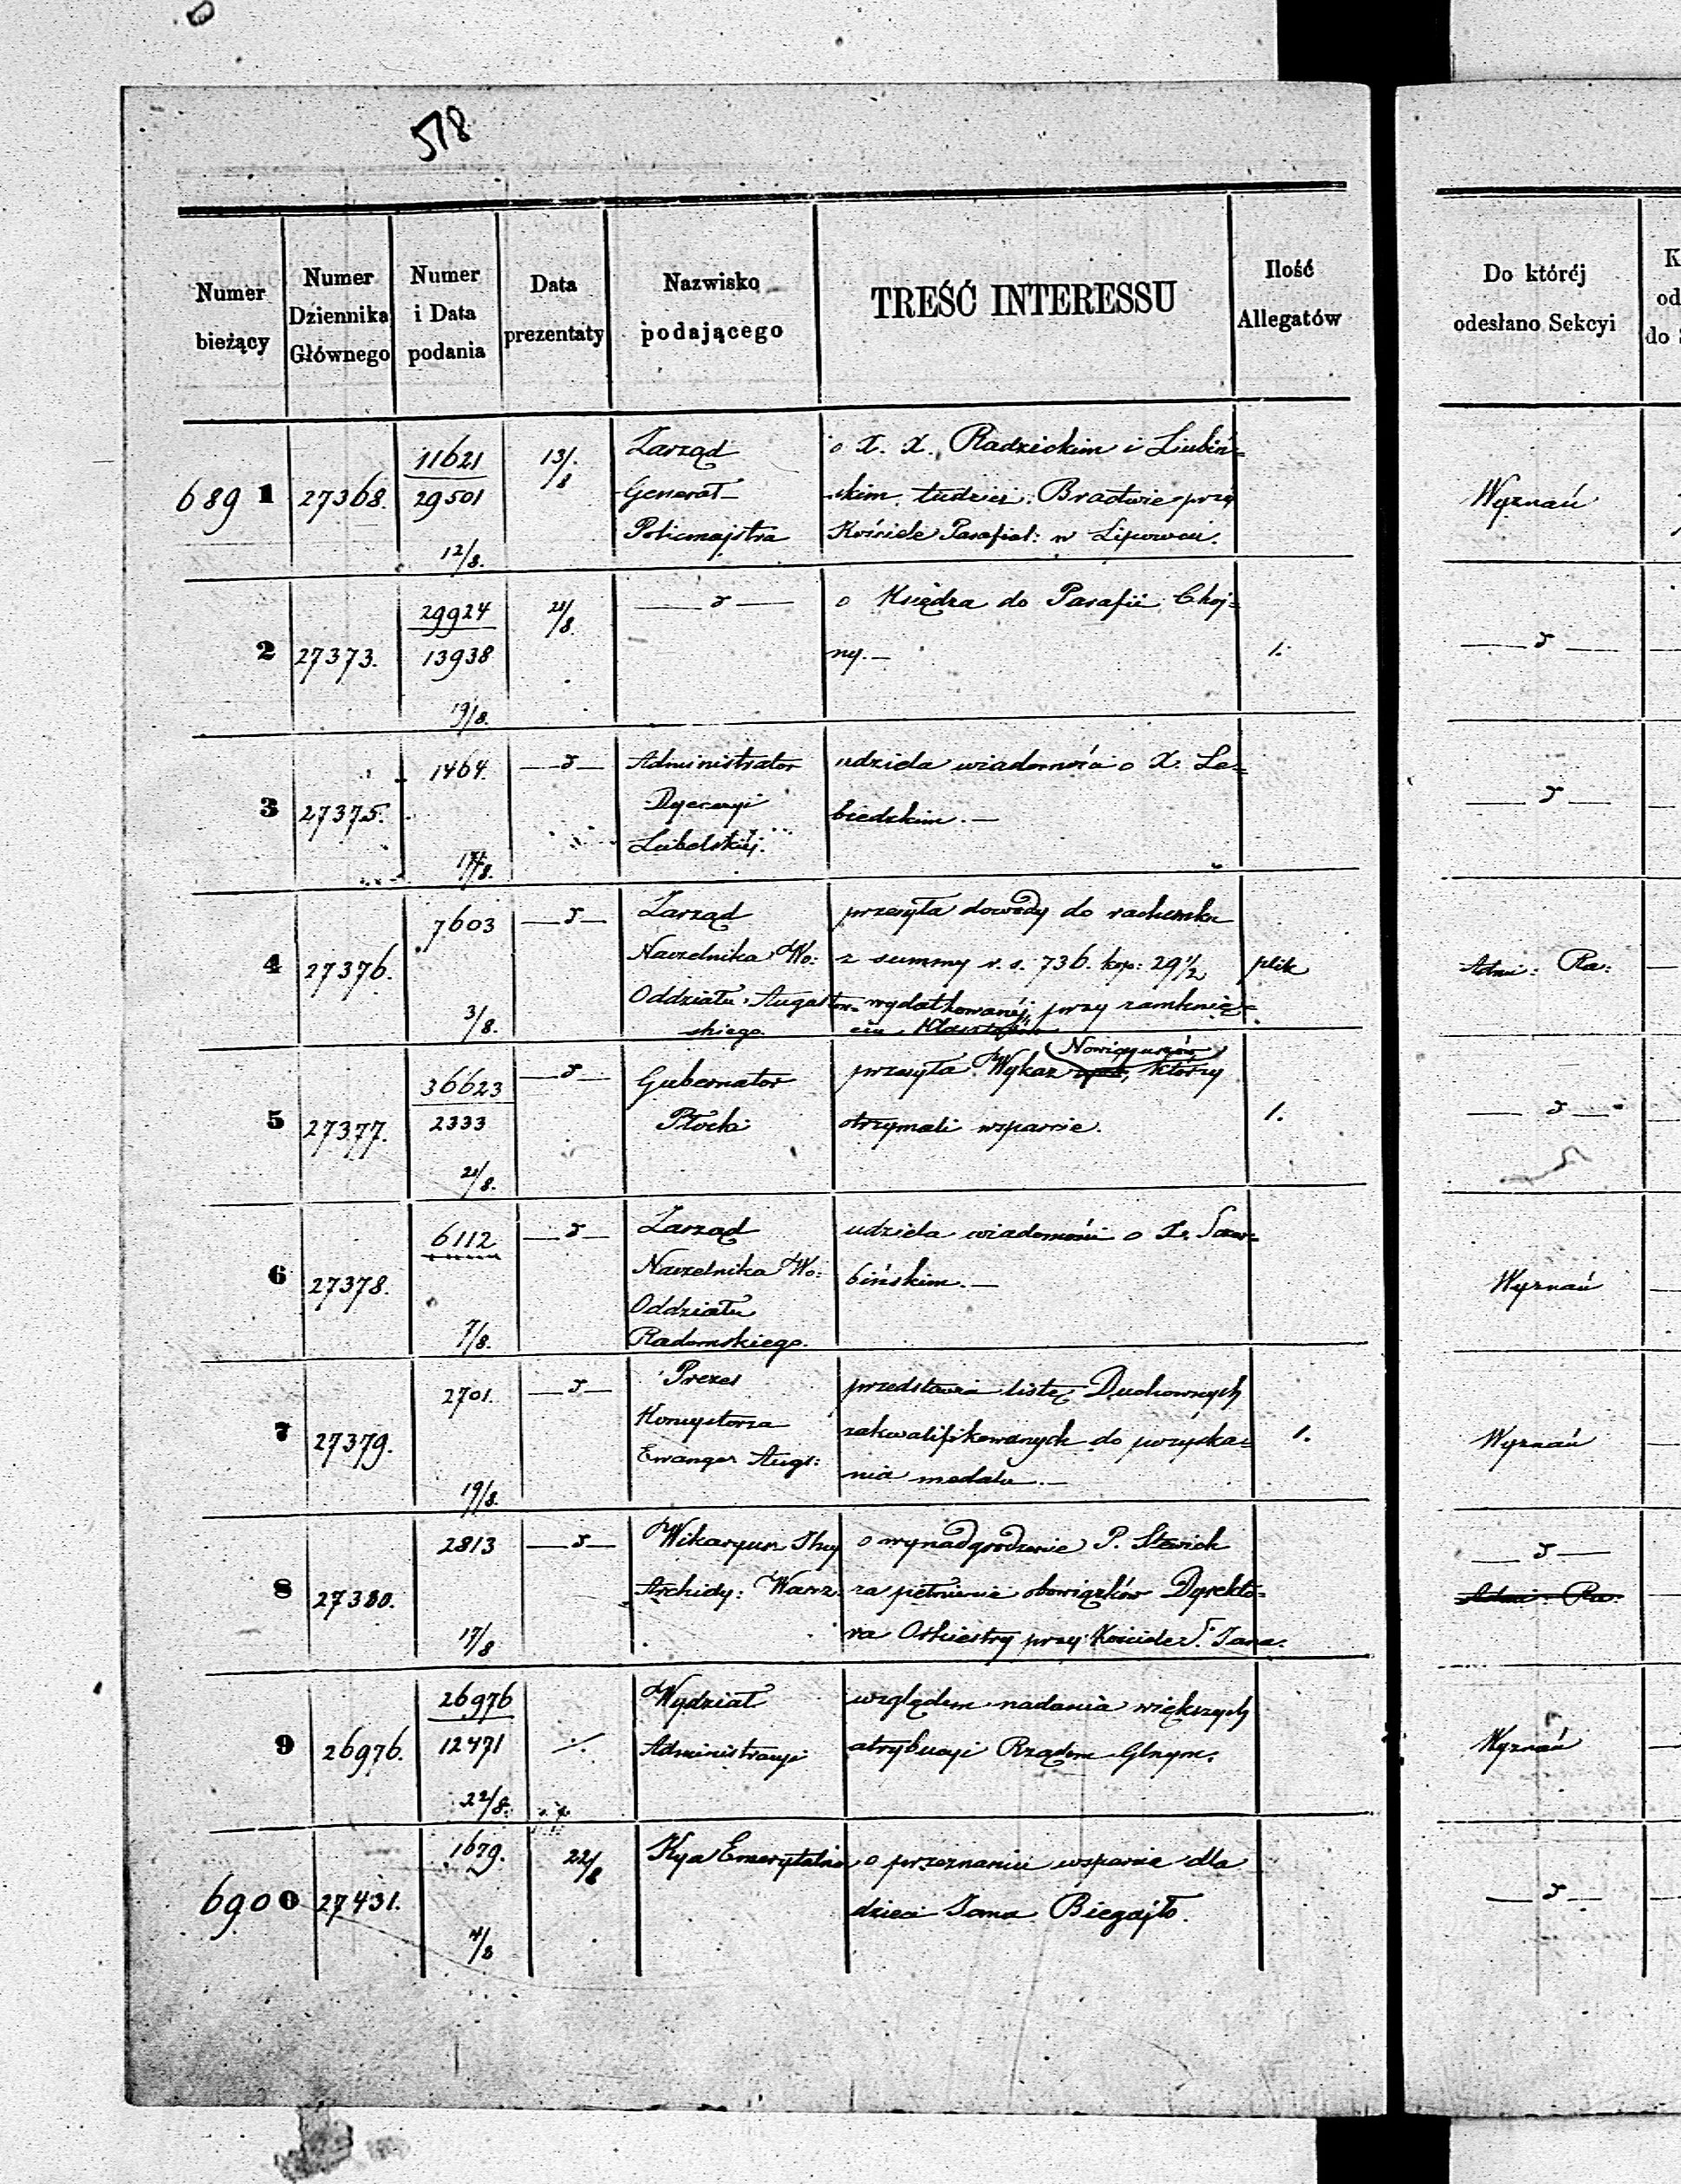 578
Numer bieżący
Numer Dziennika Głównego
Numer i Data podania
Data prezentaty
Nazwisko podającego
TREŚĆ INTERESSU
Ilość Allegatów
Do któréj odesłano Sekcyi
689 1
27368.
11621
29501
12/8.
13/8
Zarząd
Generał
Policmajstra
o X. X. Radzickim i Liubiń=
skim tudzież Bractwie przy
Kościele Parafial: w Lipowcu.
Wyznań
2
27373.
29924
13938
19/8.
21/8.
— d —
o Księdza do Parafii Choj=
ny. —
1.
— d —
3
27375.
1464.
17/8.
— d —
Administrator
Dyecezyi
Lubelskiéj.
udziela wiadomości o X. Le=
biedzkim. —
— d —
4
27376.
7603
3/8.
— d —
Zarząd
Naczelnika Wo:
Oddziału Augustow=
skiego
przesyła dowody do rachunku
z summy r. s. 736. kop: 29 1/2
wydatkowanéj przy zamknię=
ciu Klasztorów
plik
Admi: Ra:
5
27377.
36623
2333
21/8.
— d —
Gubernator
Płocki
Nowicyuszów
przesyła Wykaz którzy
otrzymali wsparcie.
1.
— d —
6
27378.
6112
7/8.
— d —
Zarząd
Naczelnika Wo:
Oddziału
Radomskiego.
udziela wiadomości o X.
bińskim. —
Wyznań
7
27379.
2701.
19/8.
— d —
Prezes
Konsystorza
Ewange: Augs:
przedstawia listę Duchownych
zakwalifikowanych do pozyska=
nia medalu. —
1.
Wyznań
8
27380.
2813
17/8
— d —
Wikaryusz
Archidy: Warsz:
o wynadgrodzenie P. Stewich
za pełnienie obowiązków Dyrekto=
ra Orkiestry przy Kościele S. Jana.
— d —
Admi: Ra:
9
26976.
26976
12471
22/8.
Wydział
Administracyi
względem nadania większych
atrybucyi Rządom Glnym.
Wyznań
690 0
27431.
1679.
4/8
22/8
Kya Emerytalna
o przeznaniu wsparcia dla
dzieci Jana Biegajło.
— d —